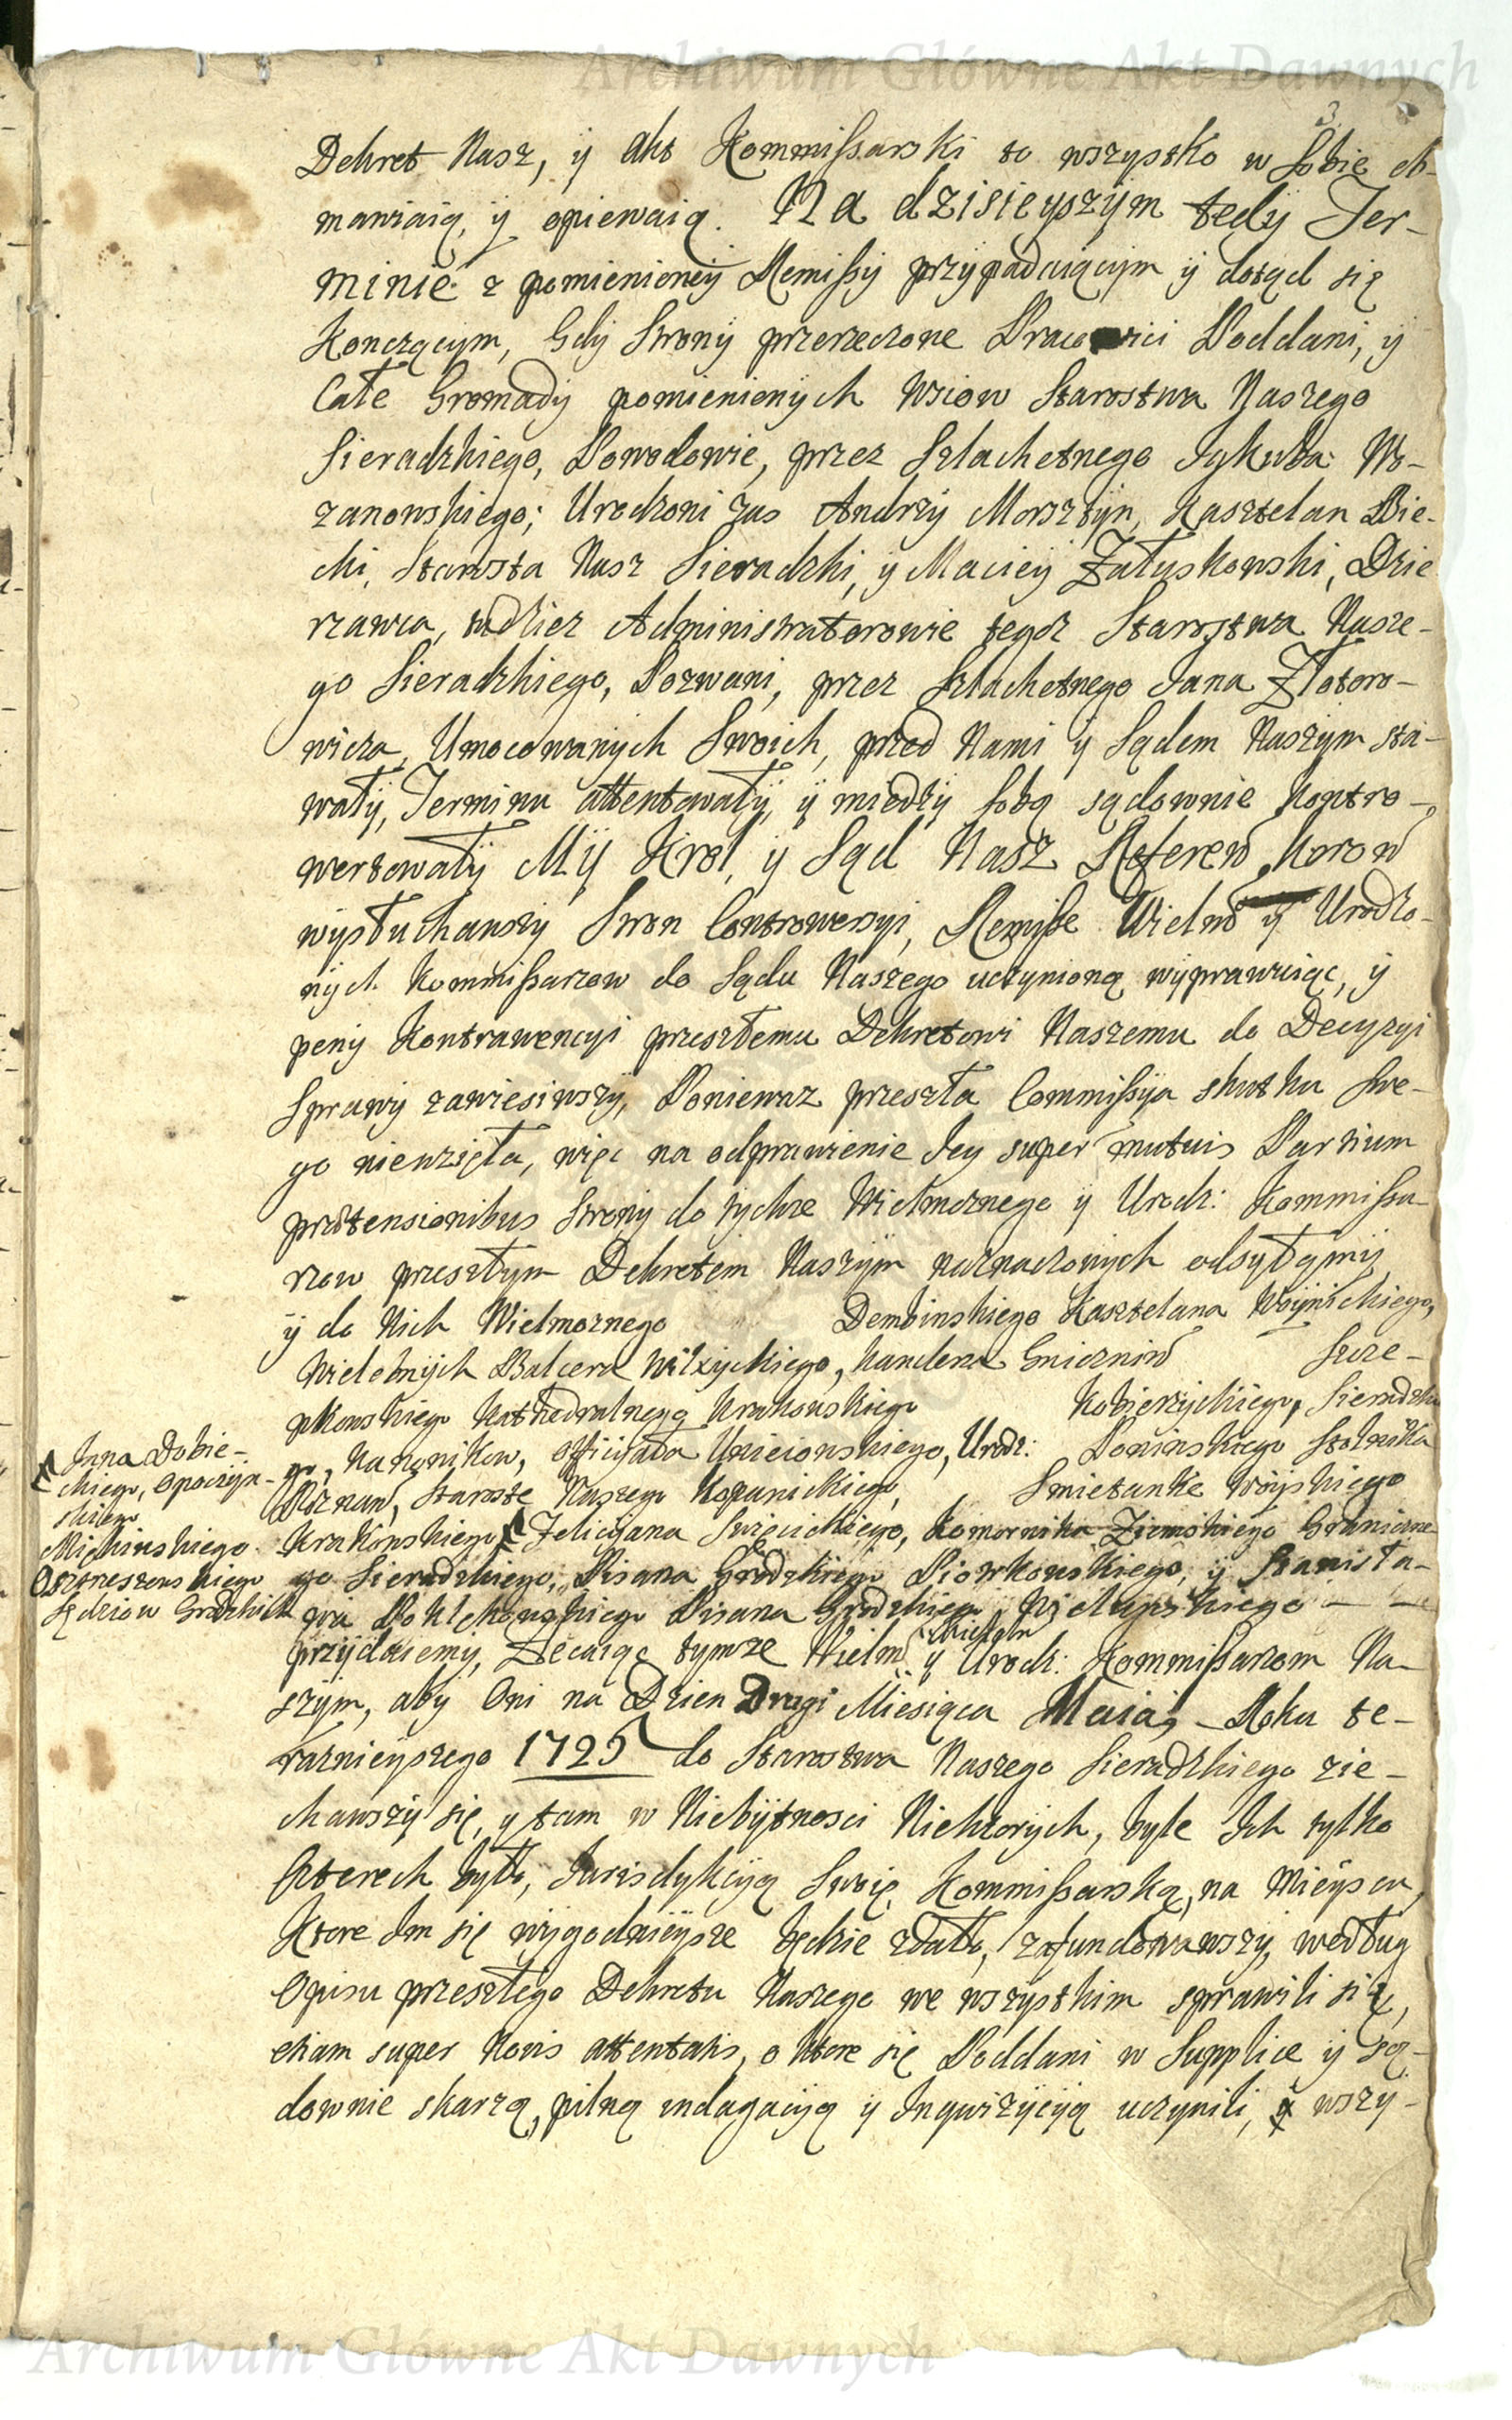 Archiwum Główne Akt Dawnych
3
Dekret Nasz, ÿ Akt Kommissarski to wszystko w sobie ob-
mawiaią, ÿ opiewaią. Na dzisieyszÿm tedÿ Ter-
minie z pomienioneÿ Remissÿ przÿpadaiącym ÿ dotąd się
Konczącym, Gdÿ Stronÿ przerzeczone Pracowici Poddani, ÿ
Całe Gromadÿ pomienionÿch Wsiow Starostwa Naszego
Sieradzkiego, Powodowie, przez Szlachetnego Jakuba
zanowskiego; Urodzoni zas Andrzÿ Morsztÿn, Kasztelan Bie-
cki, Starosta Nasz Sieradzki, ÿ Macieÿ Załuskowski, Dzie
rzawca, tudziez Administratorowie tegoz Starostwa Nasze-
go Sieradzkiego, Pozwani, przez Szlachetnego Jana Złotoro-
wicza, Umocowanÿch Swoich, przed Nami ÿ Sądem Naszÿm sta-
wałÿ, Terminu attentowałÿ, ÿ międzÿ sobą sądownie Kontro-
wertowałÿ Mÿ Krol, ÿ Sąd Nasz Referen Koron
wÿsłuchawszÿ Stron Controwersÿi, Remisse Wielm ÿ Urodzo-
nÿch Kommissarzow do Sądu Naszego uczÿnioną wÿprawuiąc, ÿ
penÿ Kontrawencÿi przeszłemu Dekretowi Naszemu do Decÿzÿi
Sprawÿ zawiesiwszÿ, Poniewaz przeszła Commissÿa skutku swe-
go niewzięła, więc na odprawienie Jeÿ super mutuis Partium
prætensionibus Stronÿ do tÿchze Wielmoznego ÿ Urodz: Kommissa-
rzow przeszłÿm Dekretem Naszÿm naznaczonÿch odsÿłamÿ
ÿ do Nich Wielmoznego Dembinskiego Kasztelana Woÿnickiego,
Wielebnÿch Balcera Wilxÿckiego, Kanclerza Gniezniń Szcze-
pkowskiego Kathedralnego Krakowskiego Kobierzÿckiego, Sieradzkie
go, Kanonikow, Officÿała Unieiowskiego, Urodz: Poninskiego Stolnika
Poznań, Staroste Naszego Kopanickiego, Smietanke Woÿskiego
Krakowskiego, Felicÿana Swięcickiego, Komornika Ziemskiego Graniczne
go Sieradzkiego, Pisarza Grodzkiego Piotrkowskiego, ÿ Stanisła-
wa Pisarza Grodzkiego Wielunskiego
Jana Dobie-
ckiego, Opoczÿn-
skiego
Michinskiego
Ostrzeszowskiego
Sędziow Grodzkich
przÿdaiemÿ, Zecaiąc tymze Wielm Wieleb ÿ Urodz: Kommissarzom Na-
szÿm, abÿ Oni na Dzien Drugi Miesiąca Maia, Roku te-
raznieÿszego 1725 do Starostwa Naszego Sieradzkiego zie-
chawszÿ się, ÿ tam w Niebÿtnosci Niektorÿch, bÿle Ich tÿlko
Czterech bÿło, Jurisdÿkcÿą Swoię Kommissarską, na Mieÿscu,
Ktore Im się wÿgodnieÿsze będzie zdało, zafundowawszÿ, według
Opisu przeszłego Dekretu Naszego we wszÿstkim sprawili się,
etiam super novis attentatis, o ktore się Poddani w Supplice ÿ są-
downie skarzą, pilną indagacÿą ÿ Inqwizÿcÿą uczÿnili, ÿ wszÿ-
Archiwum Główne Akt Dawnych